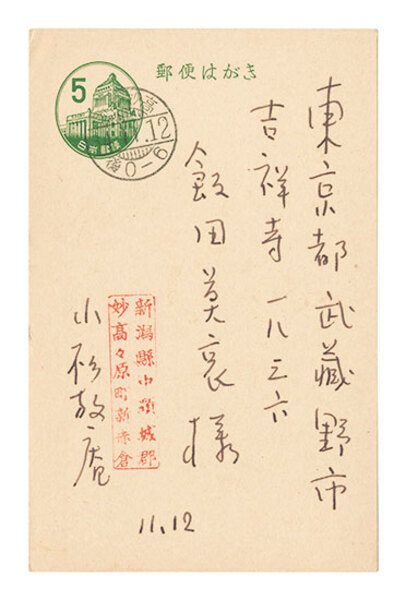 郵便はがき
5
日本郵便
高
12
后0-6
東京都武蔵野市
吉祥寺一八三六
飯田莫哀様
新潟縣中頸城郡
妙高々原町新赤倉
小杉放庵
11.12